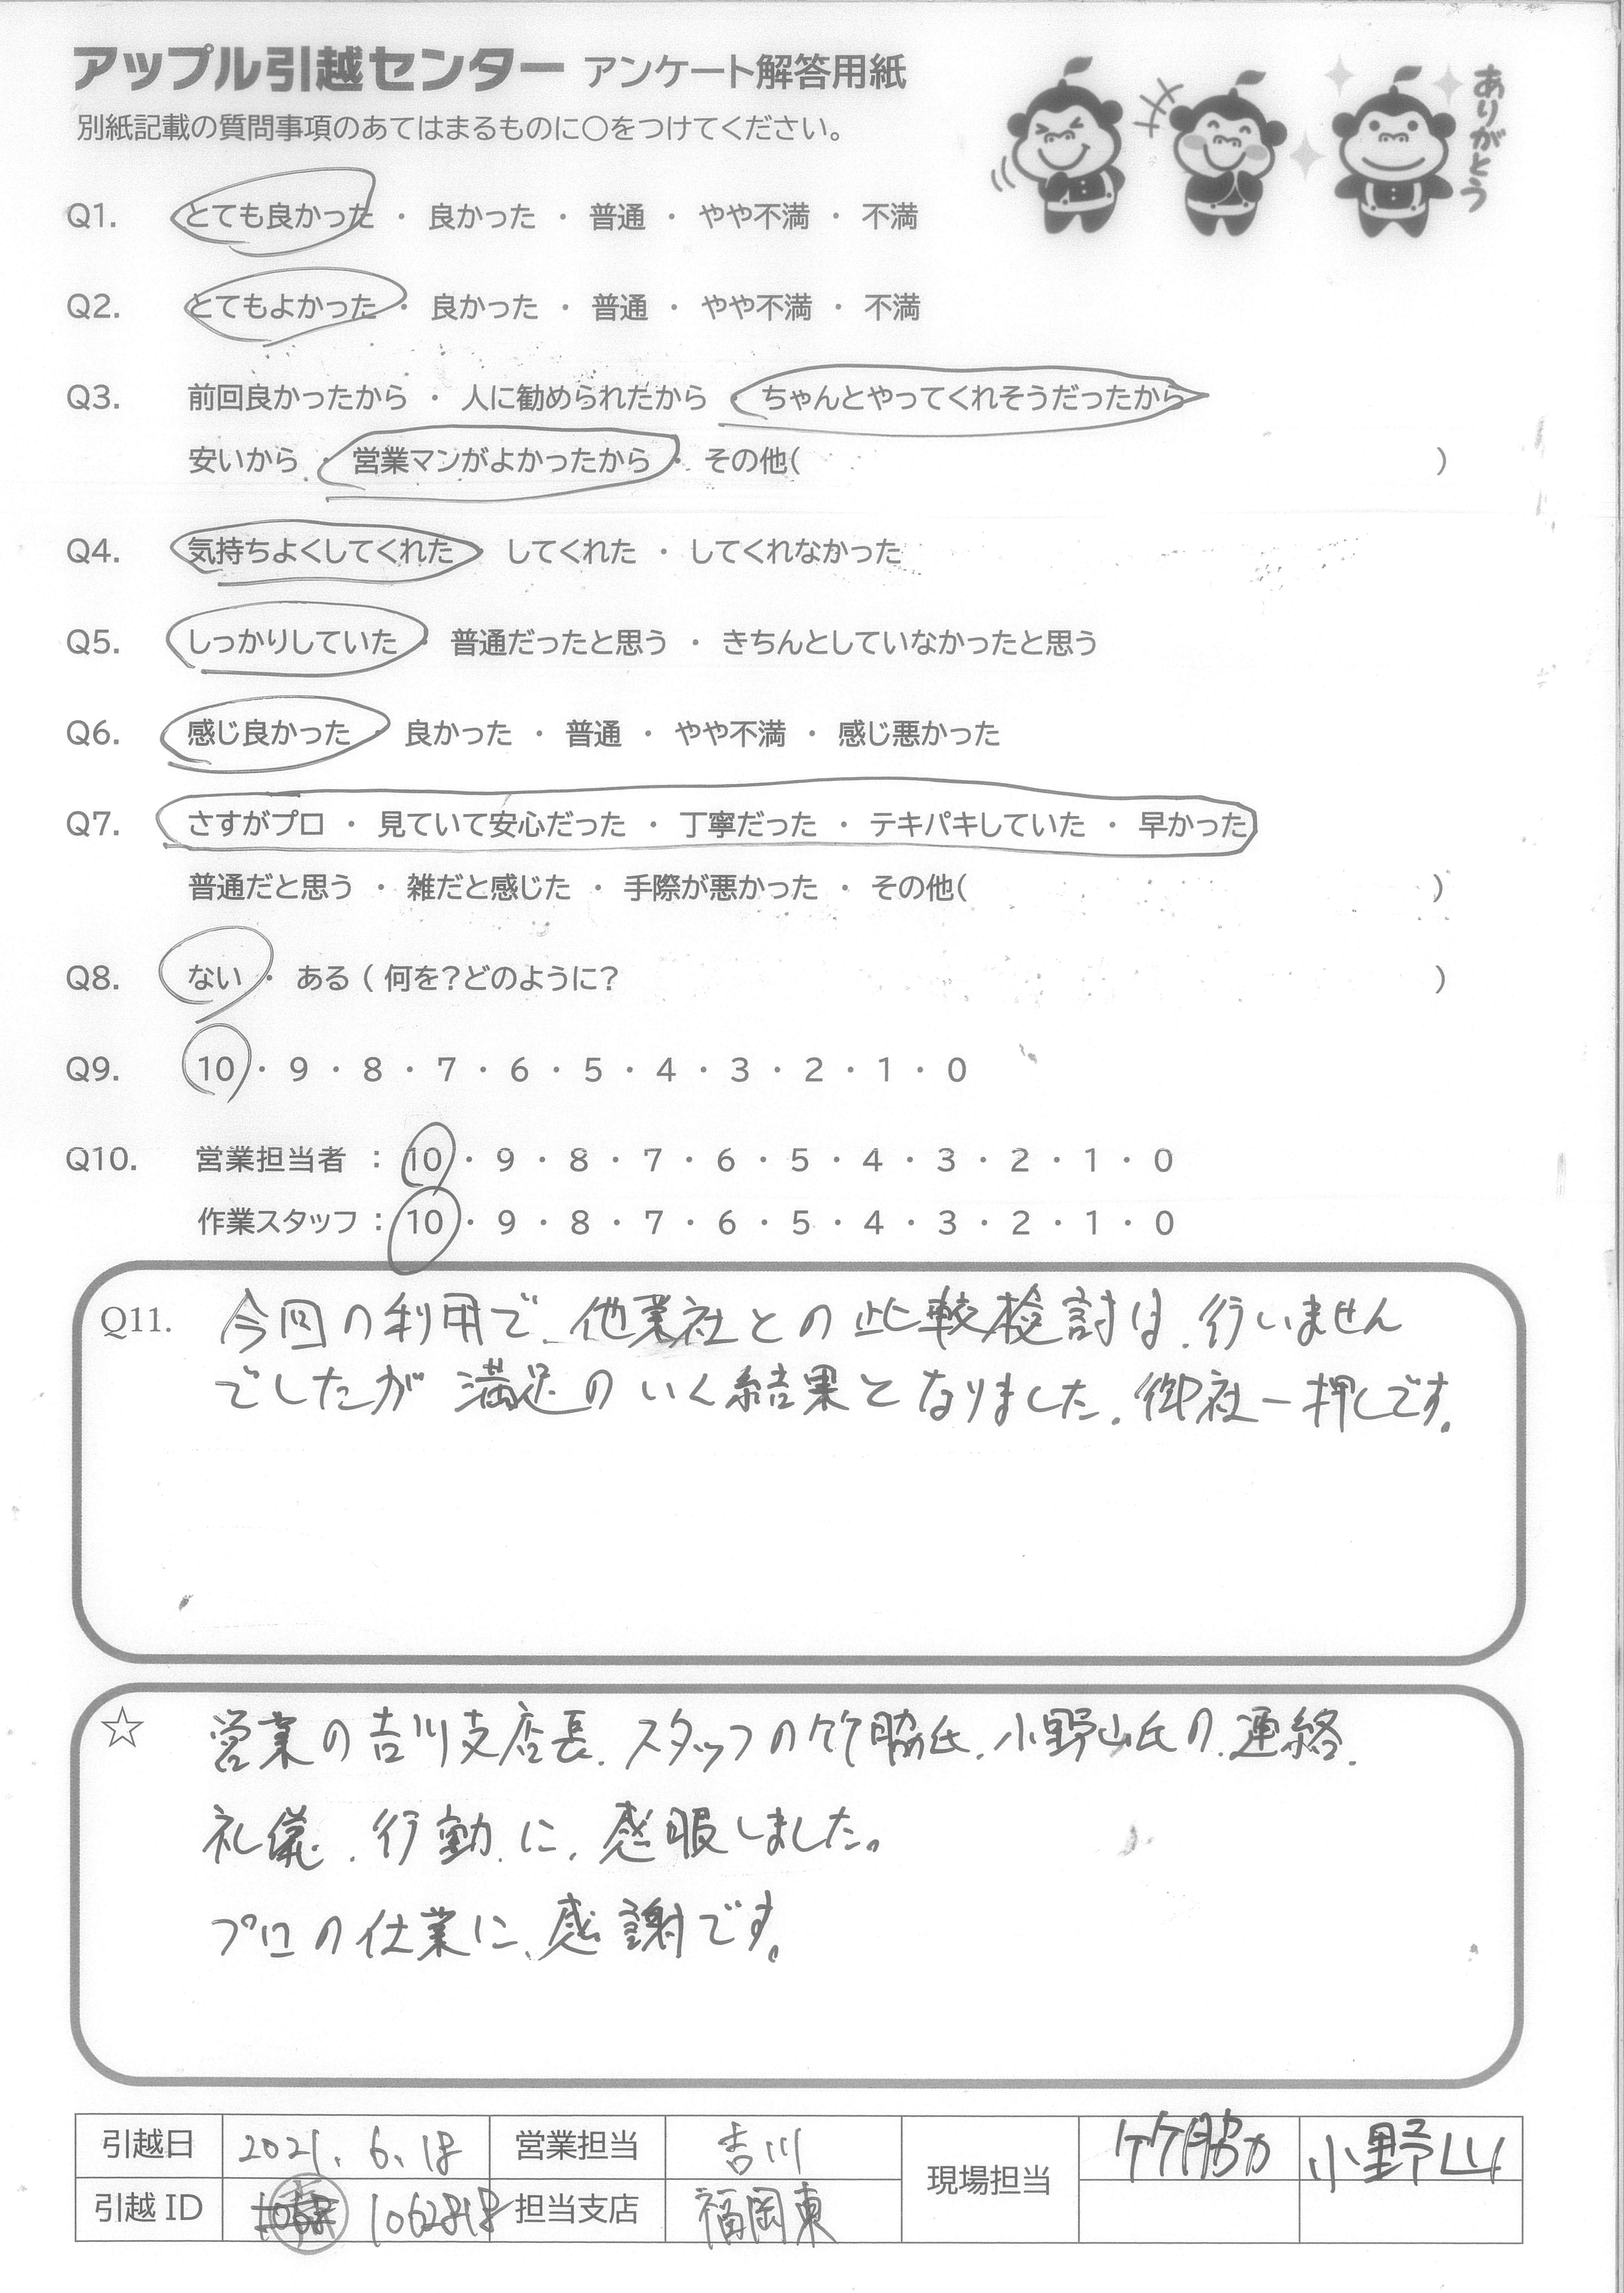 アップル引越センター アンケート解答用紙
別紙記載の質問事項のあてはまるものに○をつけてください。
ありがとう
Q1. とても良かった ・ 良かった ・ 普通 ・ やや不満 ・ 不満
Q2. とてもよかった ・ 良かった ・ 普通 ・ やや不満 ・ 不満
Q3. 前回良かったから ・ 人に勧められたから ・ ちゃんとやってくれそうだったから
安いから ・ 営業マンがよかったから ・ その他( )
Q4. 気持ちよくしてくれた ・ してくれた ・ してくれなかった
Q5. しっかりしていた ・ 普通だったと思う ・ きちんとしていなかったと思う
Q6. 感じ良かった ・ 良かった ・ 普通 ・ やや不満 ・ 感じ悪かった
Q7. さすがプロ ・ 見ていて安心だった ・ 丁寧だった ・ テキパキしていた ・ 早かった
普通だと思う ・ 雑だと感じた ・ 手際が悪かった ・ その他( )
Q8. ない ・ ある ( 何を?どのように? )
Q9. 10 ・ 9 ・ 8 ・ 7 ・ 6 ・ 5 ・ 4 ・ 3 ・ 2 ・ 1 ・ 0
Q10. 営業担当者 : 10 ・ 9 ・ 8 ・ 7 ・ 6 ・ 5 ・ 4 ・ 3 ・ 2 ・ 1 ・ 0
作業スタッフ : 10 ・ 9 ・ 8 ・ 7 ・ 6 ・ 5 ・ 4 ・ 3 ・ 2 ・ 1 ・ 0
Q11. 今回の利用で、他業社との比較検討は、行いません
でしたが 満足のいく結果となりました。御社一押しです。
☆ 営業の吉川支店長、スタッフの竹脇氏、小野山氏の、連絡、
礼儀、行動、に、感服しました。
プロの仕業に、感謝です。
引越日 2021.6.18 営業担当 吉川 現場担当 竹脇 小野山
引越ID 1062818 担当支店 福岡東